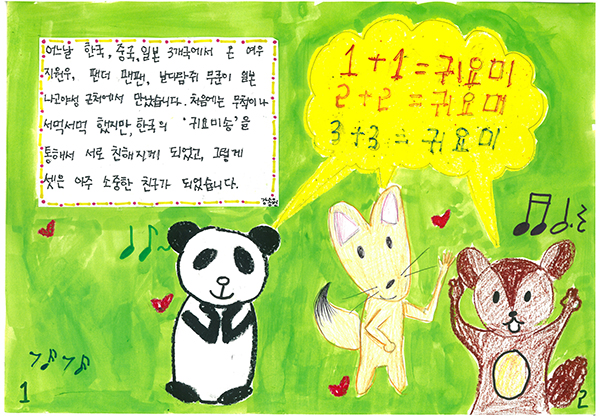 어느날 한국, 중국, 일본 3개국에서 온 여우
지원우, 팬더 팬팬, 날다람쥐 무쿤이 일본
나고야성 근처에서 만났습니다. 처음에는 무척이나
서먹서먹 했지만, 한국의 '귀요미송'을
통해서 서로 친해지게 되었고, 그렇게
셋은 아주 소중한 친구가 되었습니다.
1+1=귀요미
2+2=귀요미
3+3=귀요미
1
2